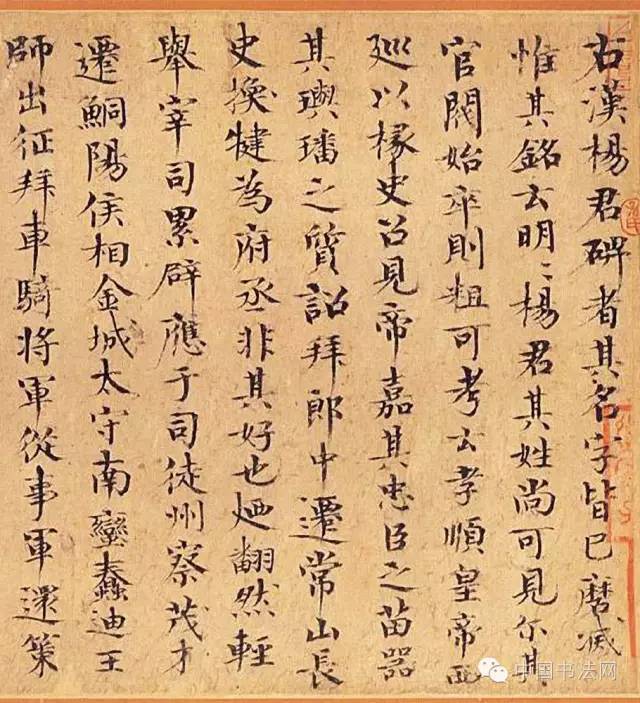 右漢楊君碑者其名字皆已磨滅
惟其銘云明〻楊君其姓尚可見尔其
官閥始卒則粗可考云孝順皇帝西
巡以掾史召見帝嘉其忠臣之苗器
其璵璠之質詔拜郎中遷常山長
史換犍為府丞非其好也迺翻然輕
舉宰司累辟應于司徒州察茂才
遷鮦陽侯相金城太守南蠻蠢迪王
師出征拜車騎將軍從事軍還策
中国书法网